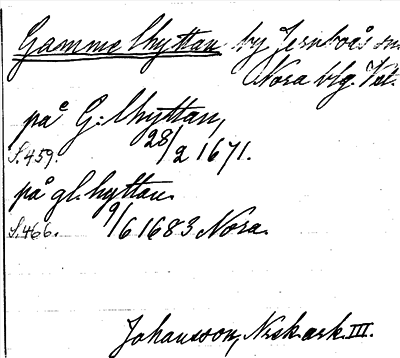 Gammelhyttan by Jernboås sn
Nora blg. Vstl.
på G:lhyttan,
S.459. 28/2 1671.
på gl. hyttan.
S.466. 9/6 1683 Nora.
Johansson, Nrsk.ark. III.